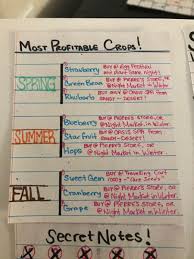 Most Profitable Crops!
SPRING
Strawberry
Buy @ Egg Festival
and plant same night!
Green Bean
Buy @ Pierre's Store, or
@ Night Market in Winter.
Rhubarb
Buy @ Oasis Spa from
Sandy - Desert!
SUMMER
Blueberry
Buy @ Pierre's Store, or
@ Night Market in Winter.
Star Fruit
Buy @ Oasis Spa from
Sandy - Desert!
Hops
Buy @ Pierre's Store, or
@ Night Market in Winter.
FALL
Sweet Gem
Buy @ Traveling Cart.
Cranberry
Buy @ Pierre's Store, or
@ Night Market in Winter.
Grape
Buy @ Pierre's Store, or
@ Night Market in Winter.
Secret Notes!